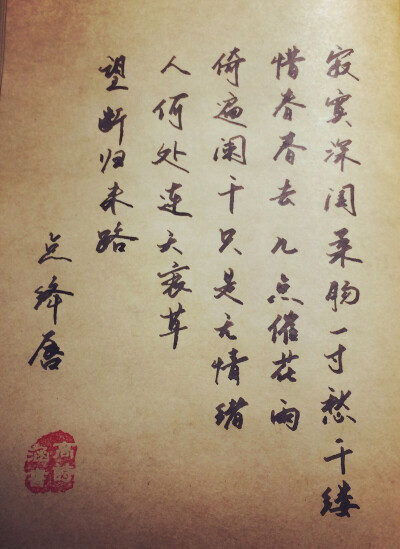 寂寞深闺柔肠一寸愁千缕
惜春春去几点催花雨
倚遍阑干只是无情绪
人何处连天衰草
望断归来路
点绛唇
高詩
涵書